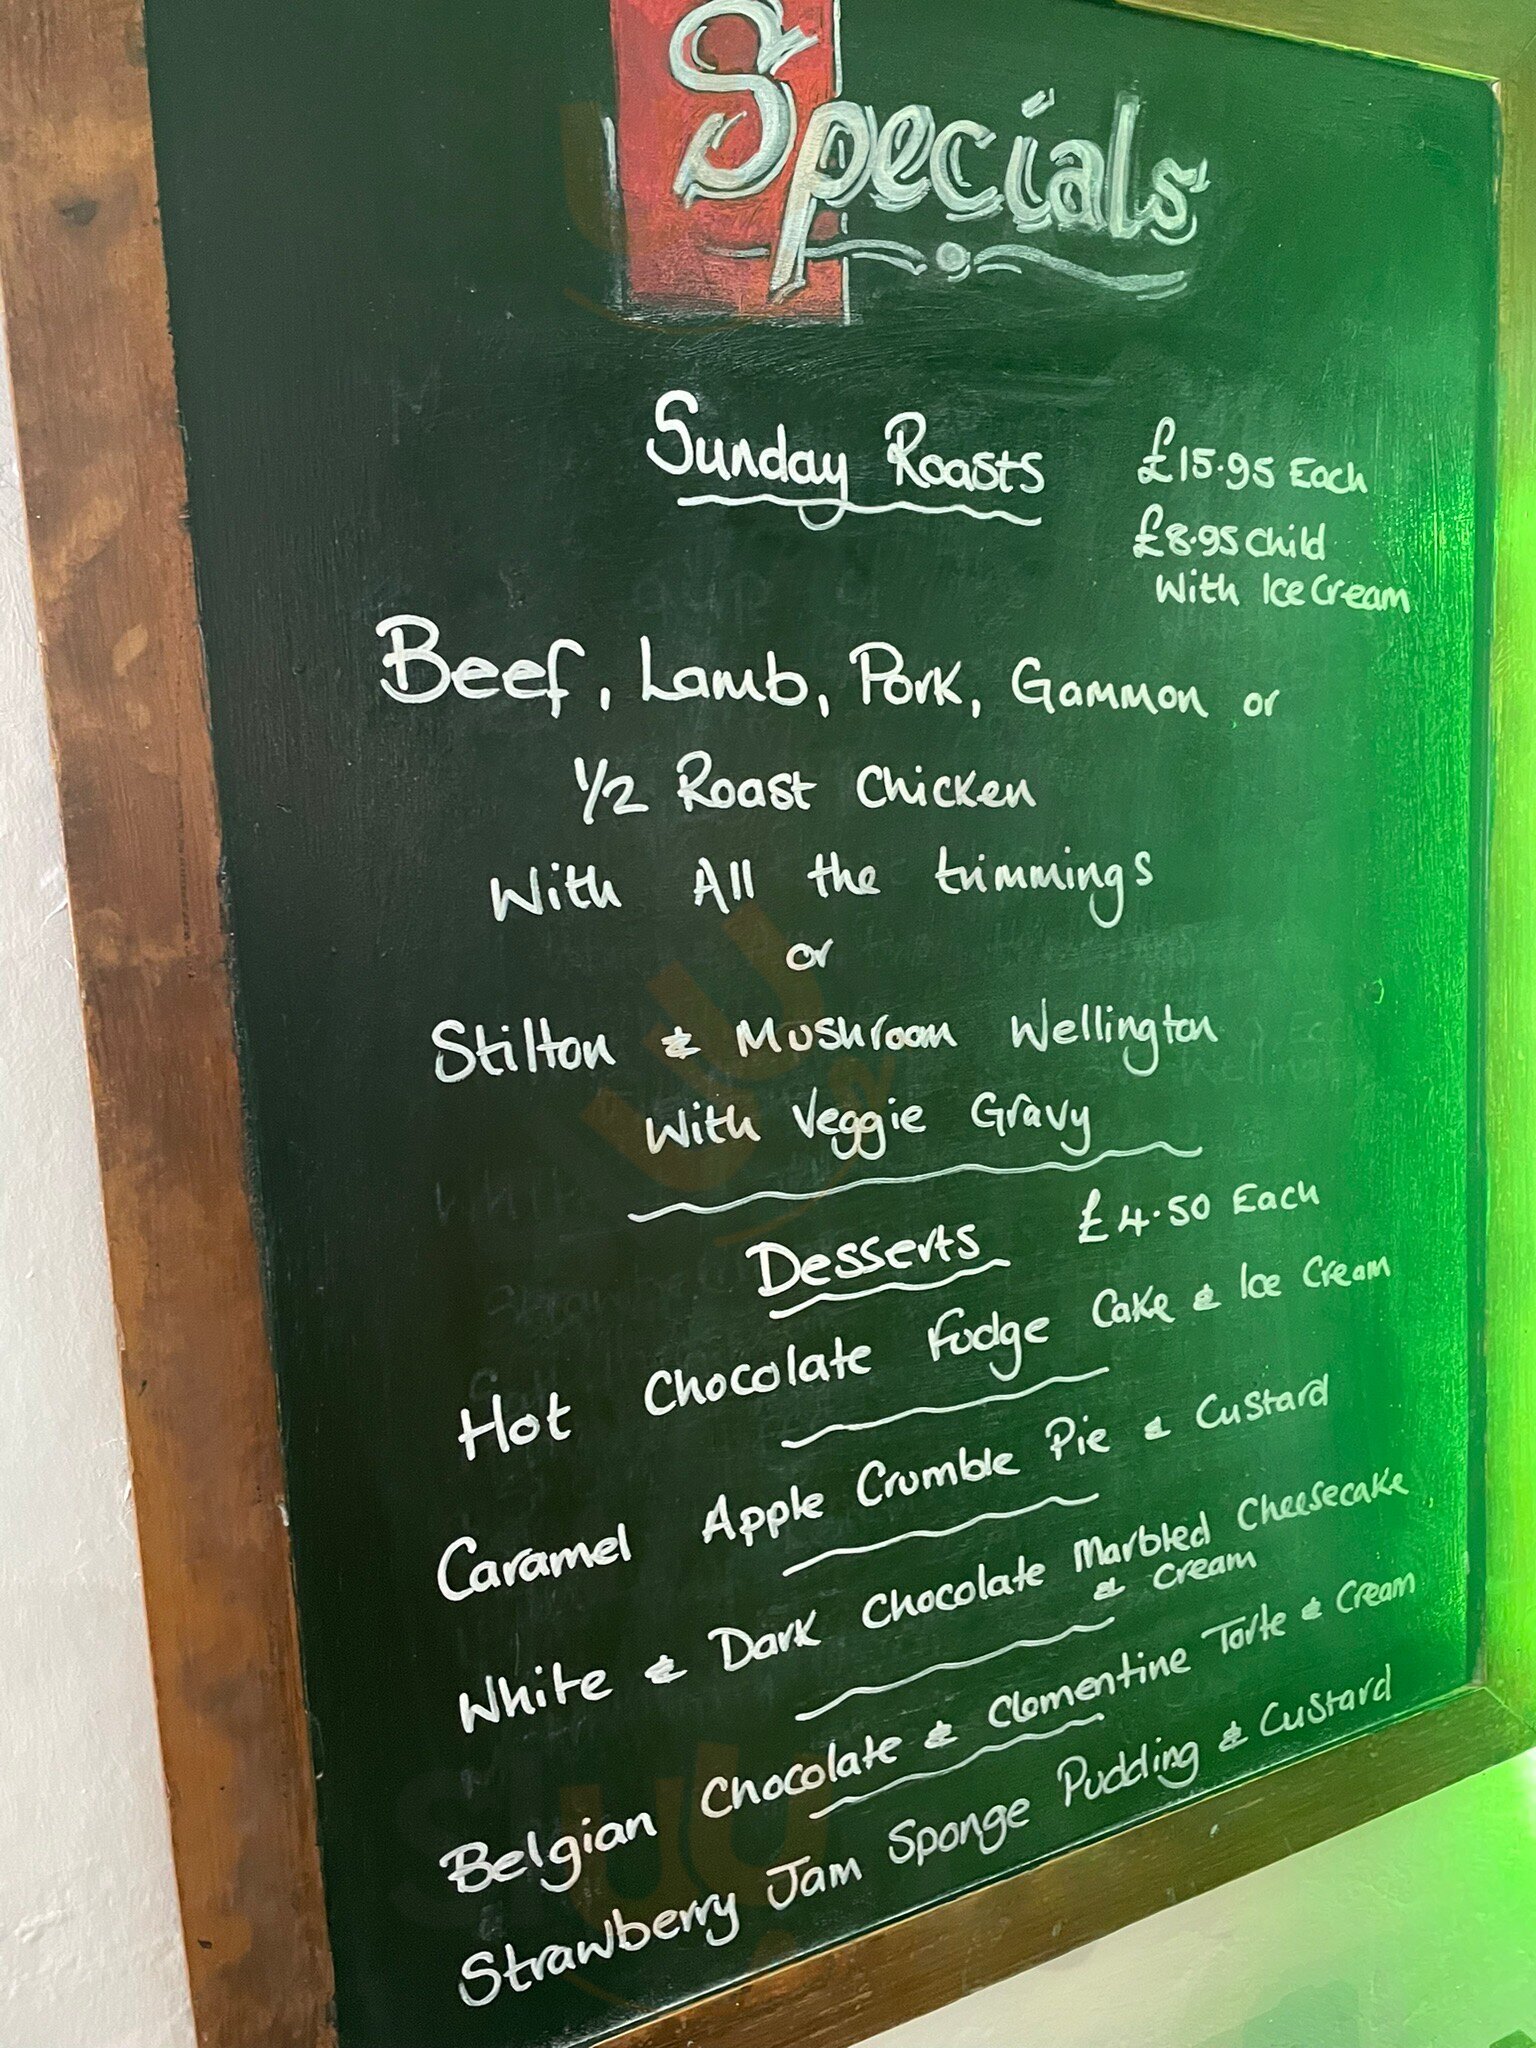 Specials
Sunday Roasts £15.95 Each
£8.95 Child
With Ice Cream
Beef, Lamb, Pork, Gammon or
1/2 Roast Chicken
With All the trimmings
or
Stilton & Mushroom Wellington
With Veggie Gravy
Desserts £4.50 Each
Hot Chocolate Fudge Cake & Ice Cream
Caramel Apple Crumble Pie & Custard
White & Dark Chocolate Marbled Cheesecake
& Cream
Belgian Chocolate & Clementine Torte & Cream
Strawberry Jam Sponge Pudding & Custard